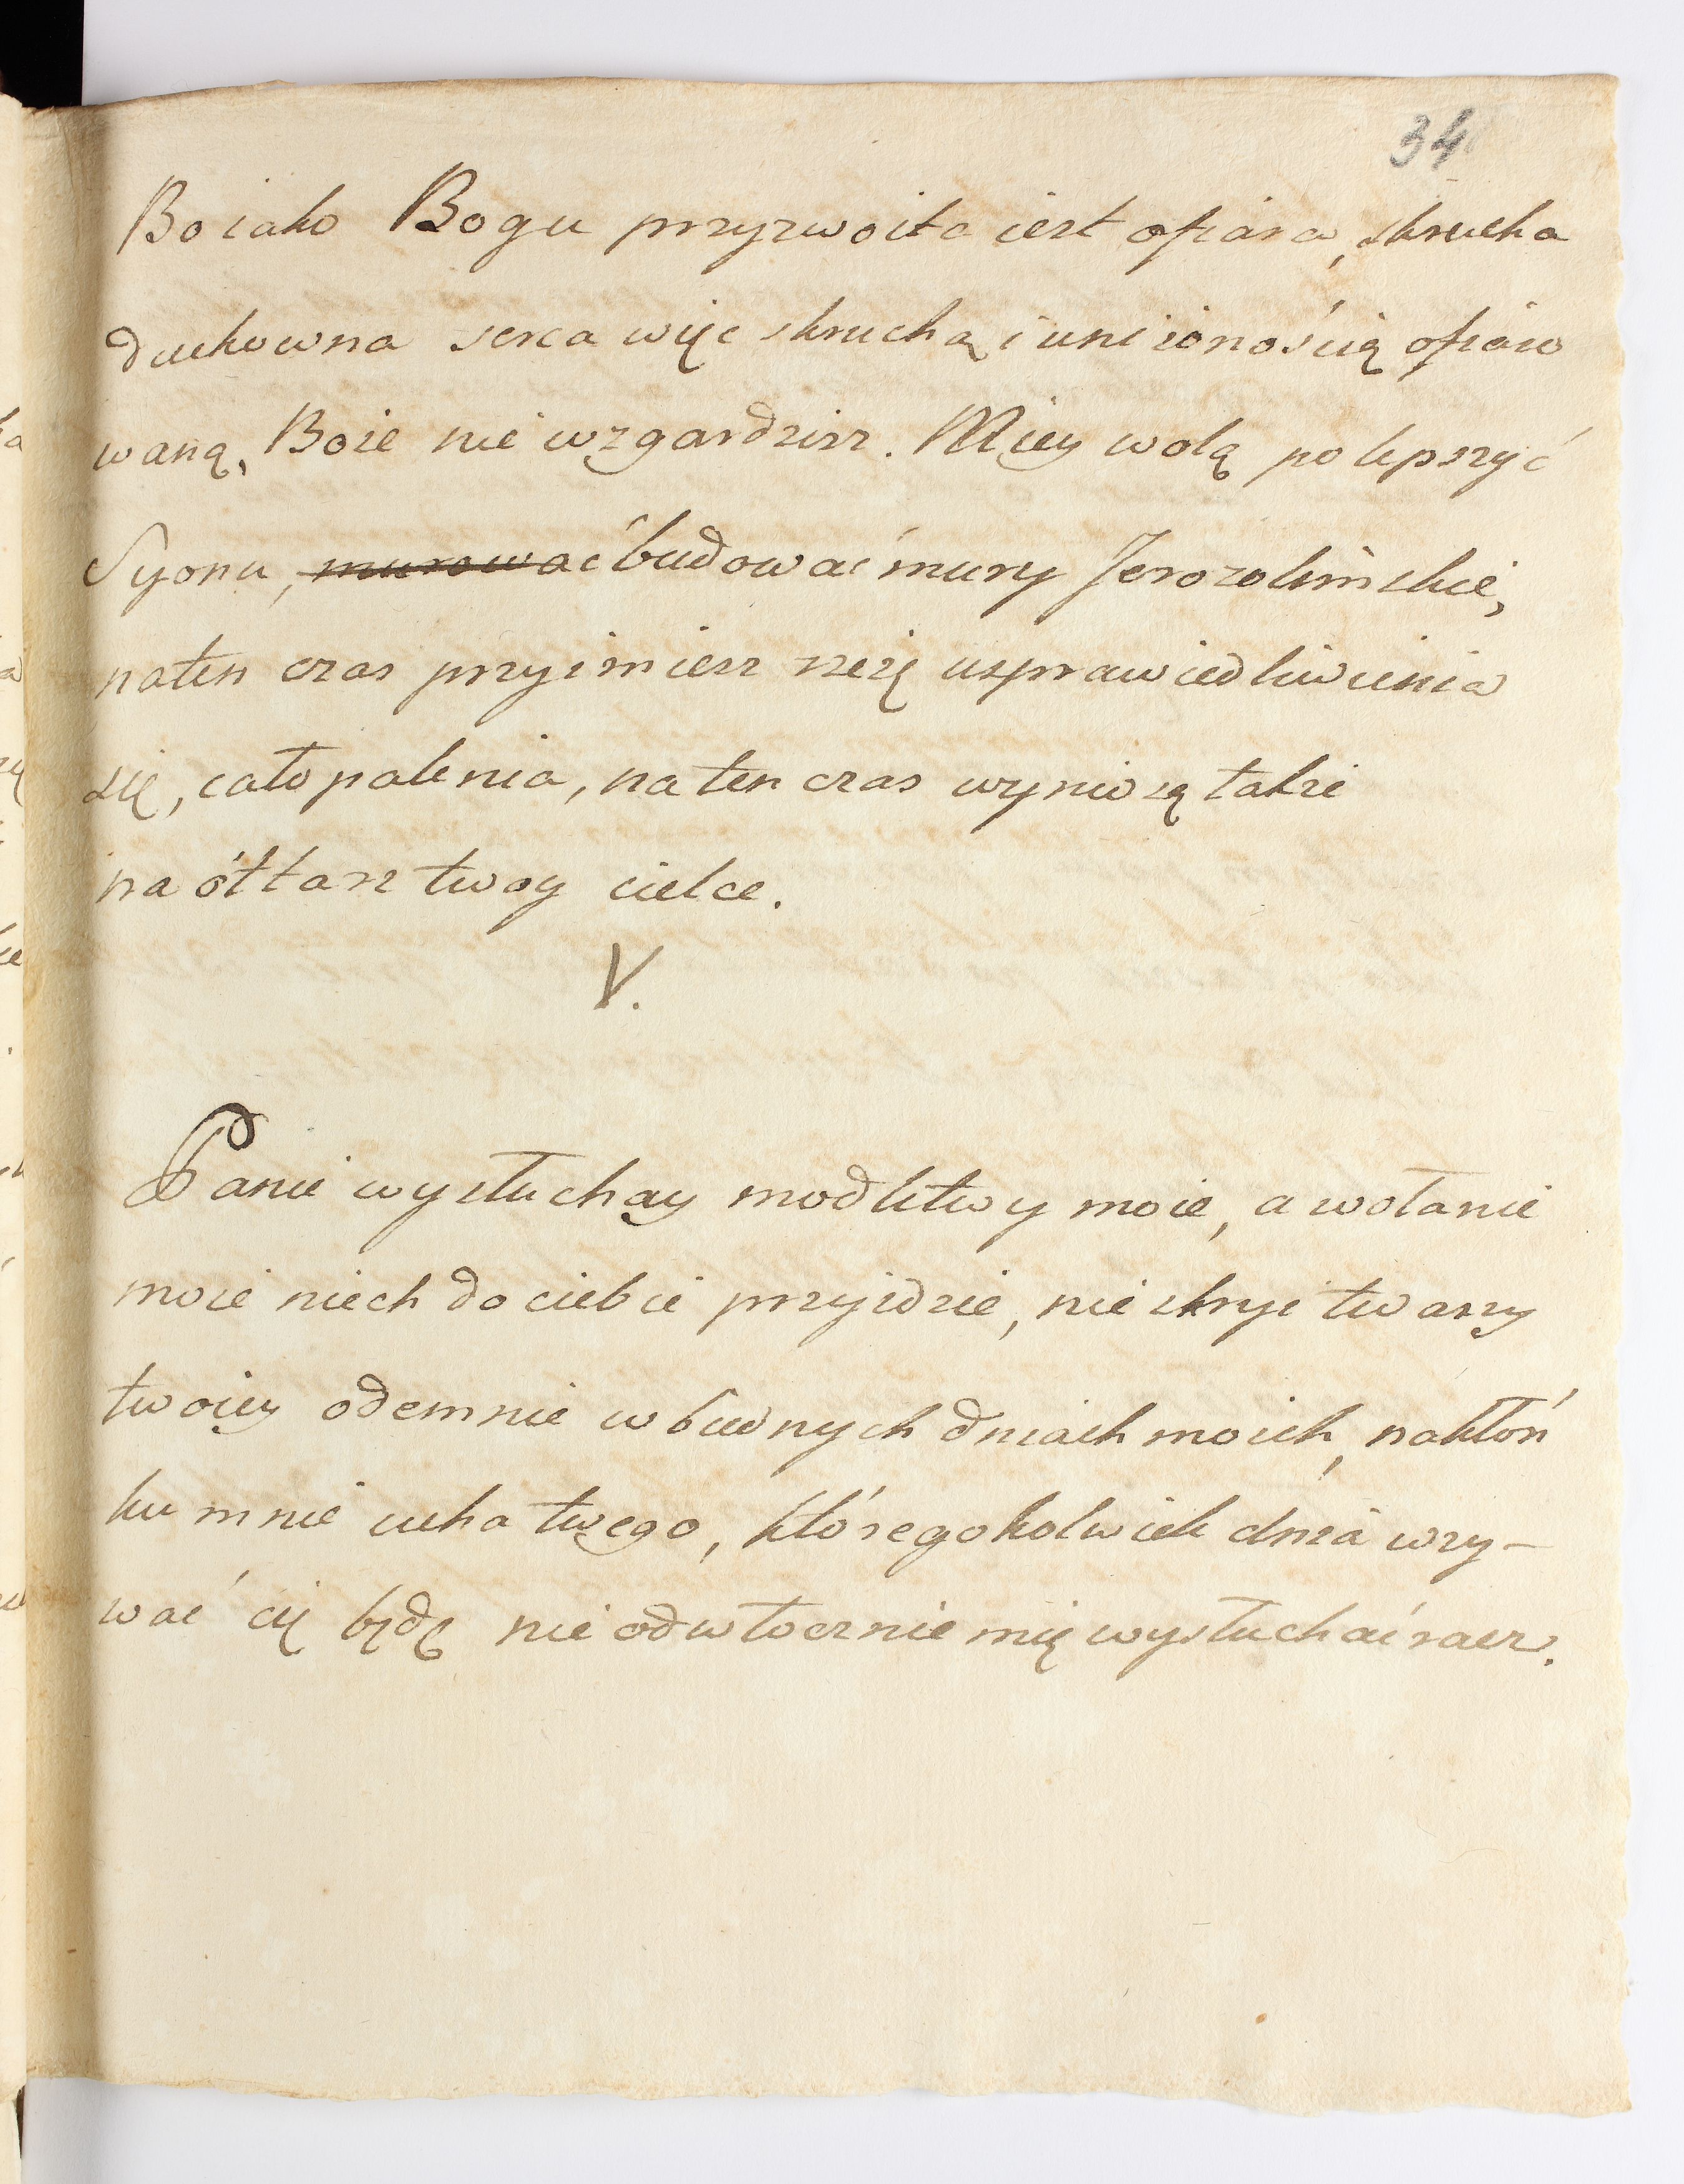 34
Bo iako Bogu przyzwoita iest ofiara, skrucha
duchowna serca więc skruchą i uniżonością ofiaro
waną, Boże nie wzgardzisz. Miey wolą polepszyć
Syonu, murować budować mury Jerozolimskie,
naten czas przyimiesz rzeżę usprawiedliwienia
się, całopalenia, na ten czas wyniosą także
na ółtarz twoy cielce.
V.
Panie wysłuchay modlitwy moie, a wołanie
moie niech do ciebie przyidzie, nie skryi twarzy
twoiey odemnie w biednych dniach moich, nakłoń
ku mnie ucha twego, któregokolwiek dnia wzy-
wać cię będę nie odwłocznie mię wysłuchać racz.